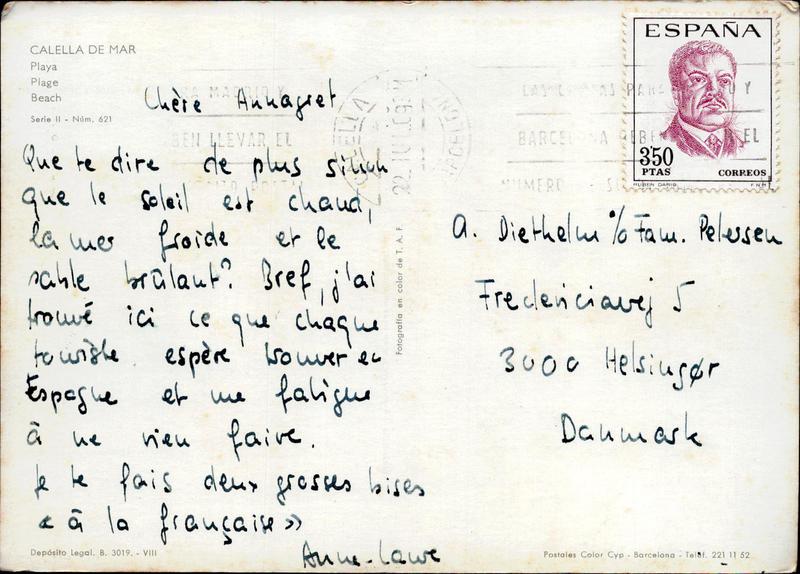 CALELLA DE MAR
Playa
Plage
Beach
Serie II - Núm. 621
Chère Annagret
Que te dire de plus sinon
que le soleil est chaud,
la mer froide et le
sable brûlant? Bref, j'ai
trouvé ici ce que chaque
touriste espère trouver en
Espagne et me fatigue
à ne rien faire.
Je te fais deux grosses bises
« à la française »
Anne-Laure
Depósito Legal. B. 3019. - VIII
Fotografía en color de T. A. F.
ESPAÑA
3'50
PTAS
CORREOS
RUBEN DARIO
F.N.M.T.
BARCELONA DEBEN EL
NUMERO
BEN LLEVAR EL
A. Diethelm % Fam. Petersen
Fredericiavej 5
3000 Helsingør
Danmark
Postales Color Cyp - Barcelona - Teléf. 221 11 52